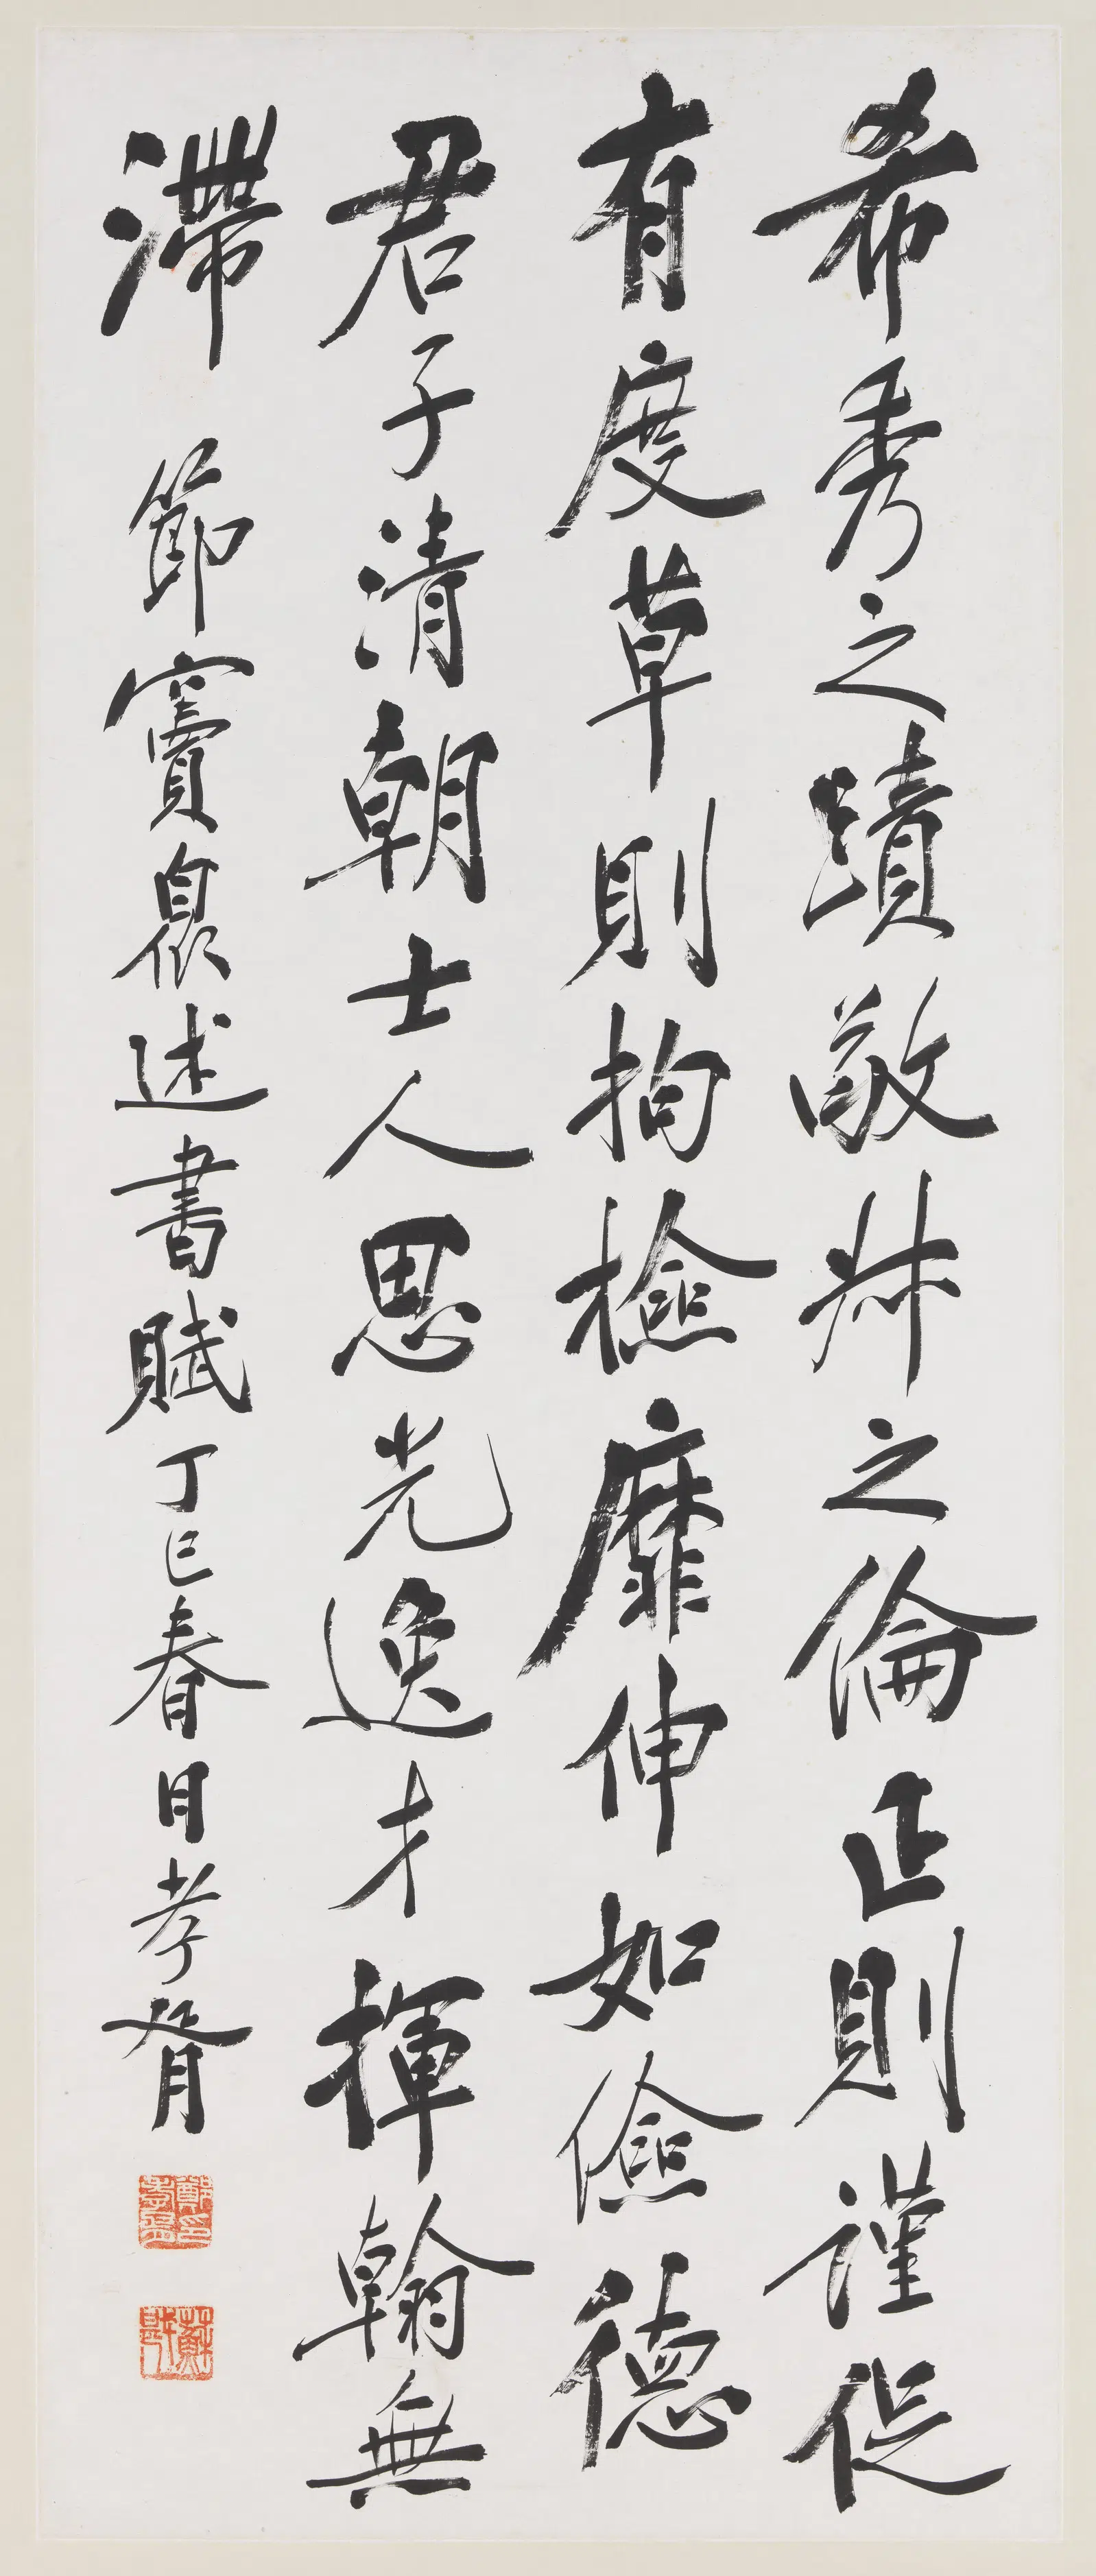 希秀之蹟敬叔之倫正則謹促
有度草則拘檢靡伸如儉德
君子清朝士人思光逸才揮翰無
滯 節竇臮述書賦丁巳春日孝胥
鄭印孝胥
蘇戡